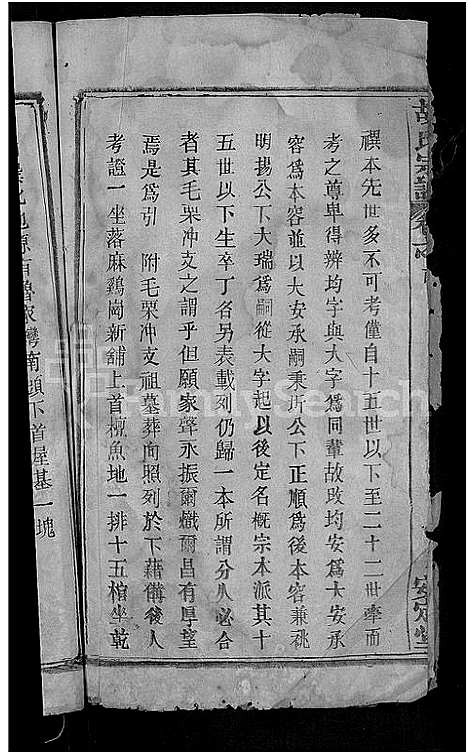 胡氏宗譜
安定堂
禩本先世多不可考僅自十五世以下至二十二世牽而
考之尊卑得辨均字與大字爲同輩故改均安爲大安承
容爲本容並以大安承嗣秉圻公下正順爲後本容兼祧
明揚公下大瑞爲嗣從大字起以後定名概宗本派其十
五世以下生卒丁名另表載列仍歸一本所謂分久必合
者其毛栗冲支之謂乎但願家聲永振爾熾爾昌有厚望
焉是爲引　附毛栗冲支祖墓葬向照列於下藉備後人
考證一坐落麻鷄崗新舖上首檀魚地一排十五棺坐乾
灣南頭下首屋基一塊
FamilySearch